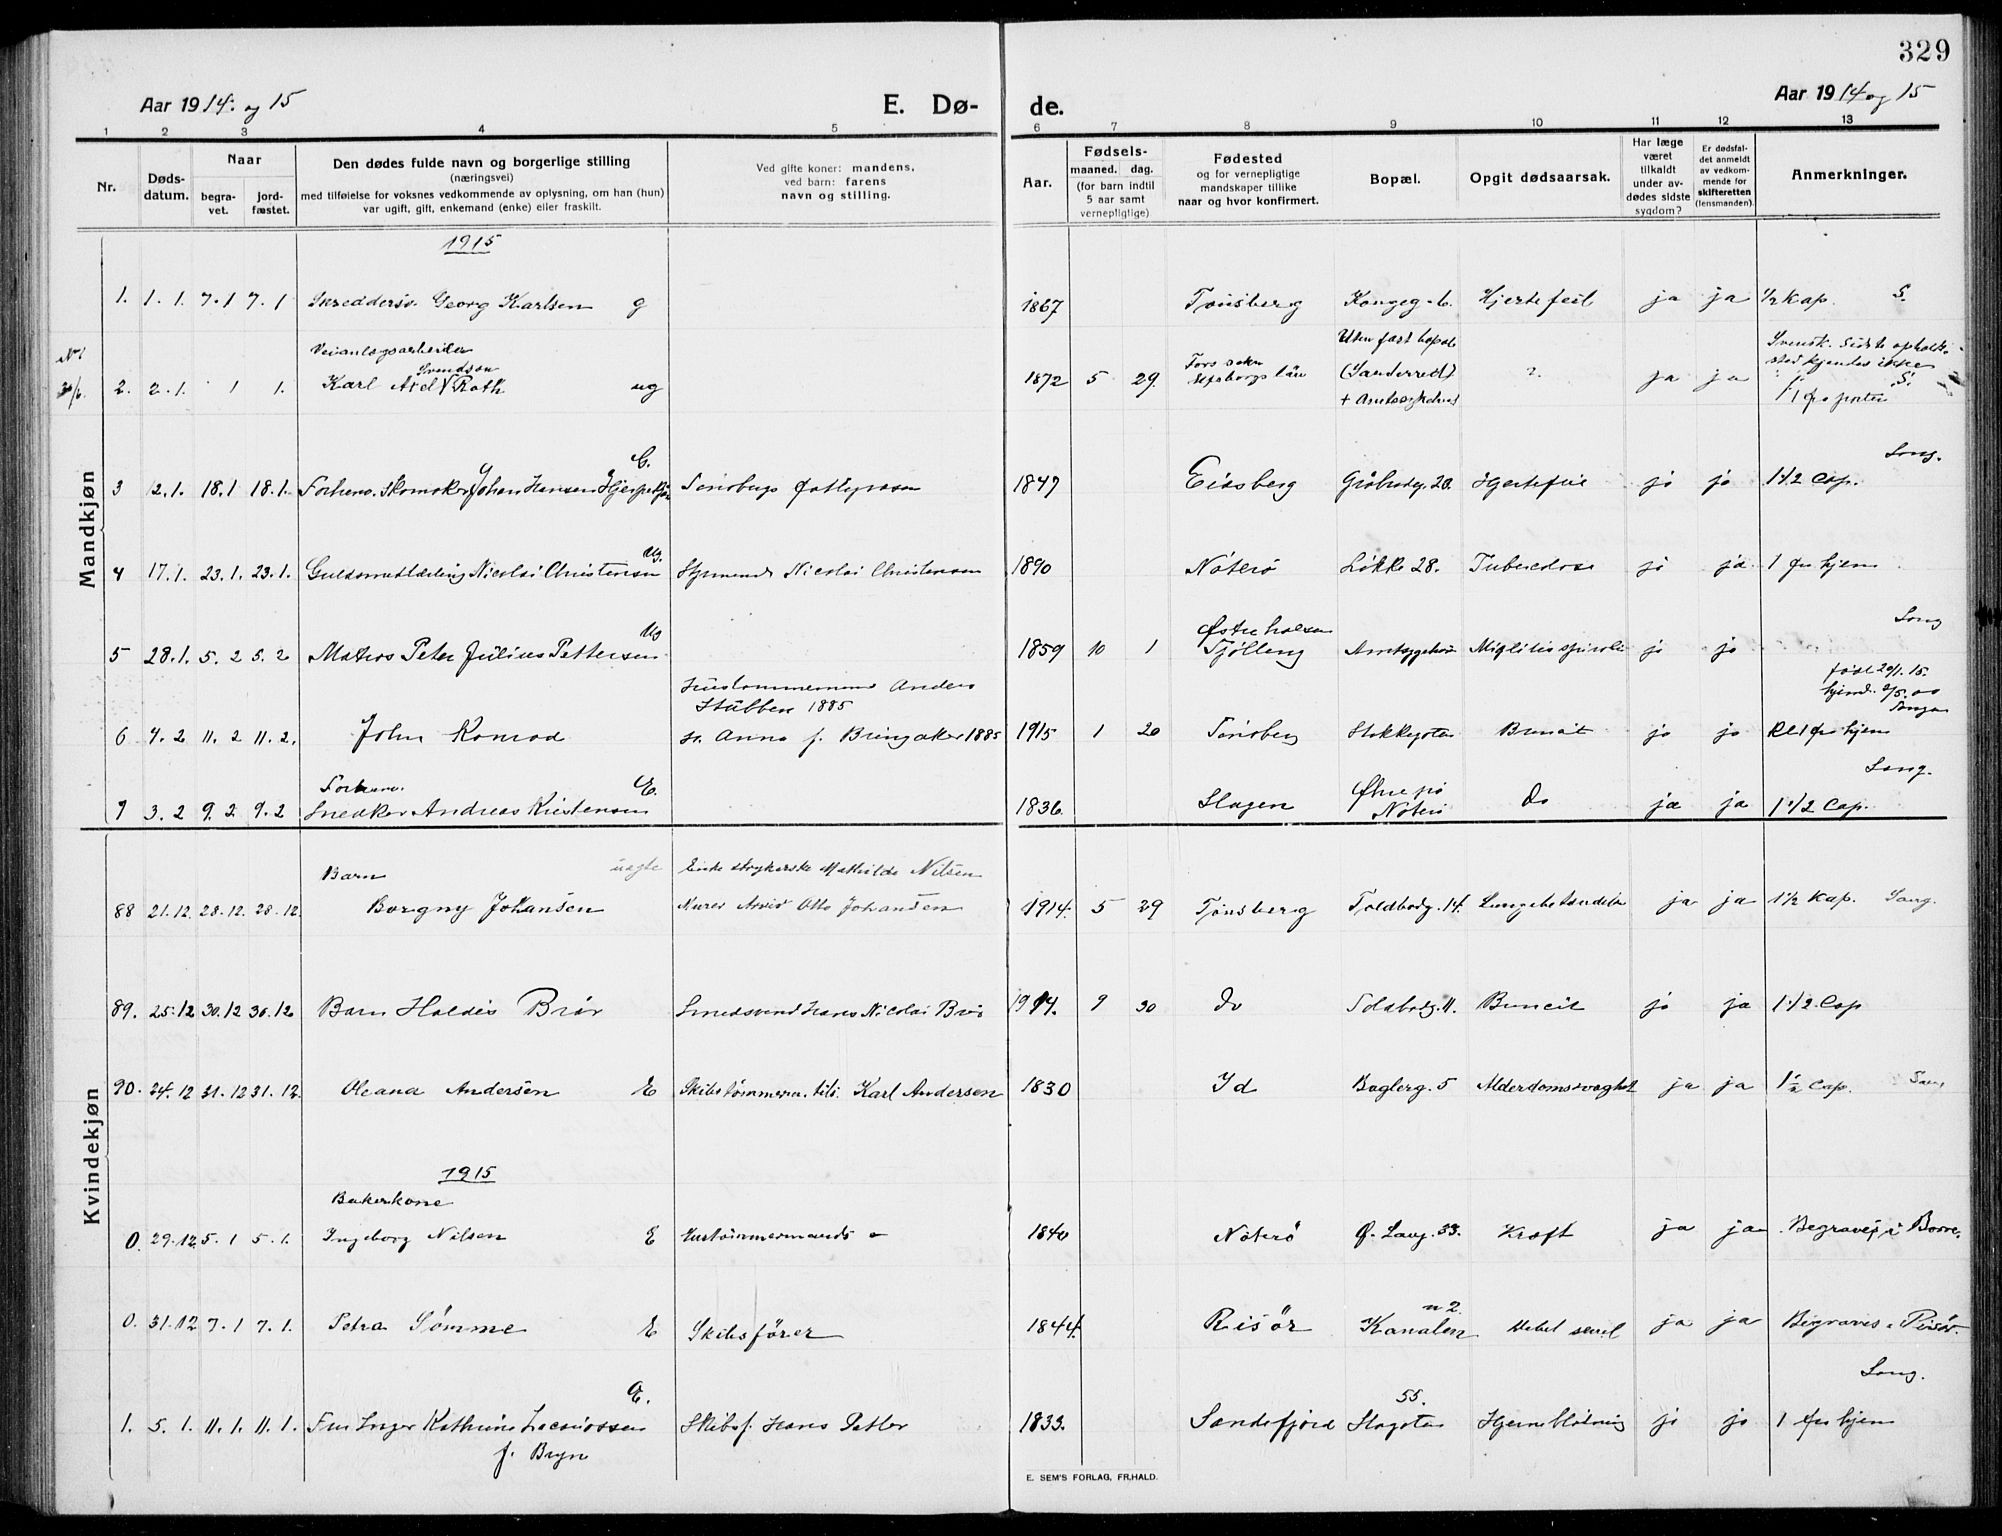 329
Aar 1914. og 15
E. Dø-
de.
Aar 1914 og 15
1 2 3 4 5 6 7 8 9 10 11 12 13
Nr.
Døds-
datum.
Naar
begra-
vet.
jord-
fæstet.
Den dødes fulde navn og borgerlige stilling
(næringsvei)
med tilføielse for voksnes vedkommende av oplysning, om han (hun)
var ugift, gift, enkemand (enke) eller fraskilt.
Ved gifte koner: mandens,
ved barn: farens
navn og stilling.
Aar.
Fødsels-
maaned. dag.
(for barn indtil
5 aar samt
vernepligtige)
Fødested
og for vernepligtige
mandskaper tillike
naar og hvor konfirmert.
Bopæl.
Opgit dødsaarsak.
Har læge
været
tilkaldt
under av-
dødes sidste
sygdom?
Er dødsfal-
det anmeldt
av vedkom-
mende for
skifteretten
(lensmanden).
Anmerkninger.
Mandkjøn
1915
1. 1. 1. 7. 1 7. 1 Skreddersv. Georg Karlsen g 1867 Tønsberg Kongeg. 6. Hjertefeil ja ja 1/2 Kap. S.
Veianlægsarbeider
Svendsen
2. 2. 1. 1 1. Karl Axel Roth ug 1872 5 29 Uten fast bopæl
(Sanderød)
? ja ja Svensk. Sidste opholds-
sted kjendes ikke
S.
3 12. 1. 18. 1 18. 1. Forhenv. Skomaker Johan Hansen E. 1847 Eidsberg Gråbrødg. 20. Hjertefeil ja ja 1 1/2 Cap. Sang.
4 17. 1. 23. 1. 23. 1. Guldsmedlærling Nicolai Christensen Ug. Styrmand Nicolai Christensen 1890 Nøterø Løkke 28. Tuberculose ja ja 1 før hjem
5 28. 1. 5. 2 5. 2 Matros Peter Julius Pettersen Ug 1859 10 1 Østre Halsen
Tjølling Amtssygehus ja ja Sang
Hustømmermand Anders
Stubben 1885
6 4. 2 11. 2 11. 2. John Konrad h. Anna f. Bringaker 1885 1915 1 20 Tønsberg Stokkegaten Bronkit ja ja født 20/1. 15.
Kl 1 før hjem
7 3. 2 9. 2 9. 2 Forhenv.
Snedker Andreas Kristensen E. 1836. Slagen Nøterø Do ja ja 1 1/2 Cap. Sang.
Kvindekjøn
Barn uegte Enke strykerske Mathilde Nilsen
88 21. 12. 28. 12. 28. 12. Borgny Johansen Murer Arvid Otto Johansen 1914. 5 29 Tønsberg Toldbodg. 14. Lungebetændelse ja ja 1 1/2 Kap. Sang.
89. 25. 12 30. 12 30. 12. Barn Haldis Brør Smedsvend Hans Nicolai Brør 1914. 9 30 Do Toldbodg. 11. Bronkit ja ja 1 1/2 Cap
90. 24. 12 31. 12 31. 12. Oleana Andersen E Skibstømmerm. Karl Andersen 1830 Id Baglerg. 5 Alderdomssvaghet ja ja 1 1/2 Cap. Sang
1915
Bakerkone
0. 29. 12. 5. 1 5. 1. Ingeborg Nilsen E Hustømmermands 1840 Nøterø Ø. Lang. 33. Kræft ja ja Begraves i Borre.
0. 31. 12 7. 1 7. 1. Petra Sømme E Skibsfører 1844. Risør n 2.
Kanalen ja ja Begraves i Risør.
1. 5. 1. 11. 1. 11. 1. Fru Inger Kathrine Lasmussen E.
f. Bryn Skibsf. Hans Petter 1833. Sandefjord 55.
Slagata Hjerneblødning ja ja 1 før hjem Sang.
E. SEM'S FORLAG, FR.HALD.